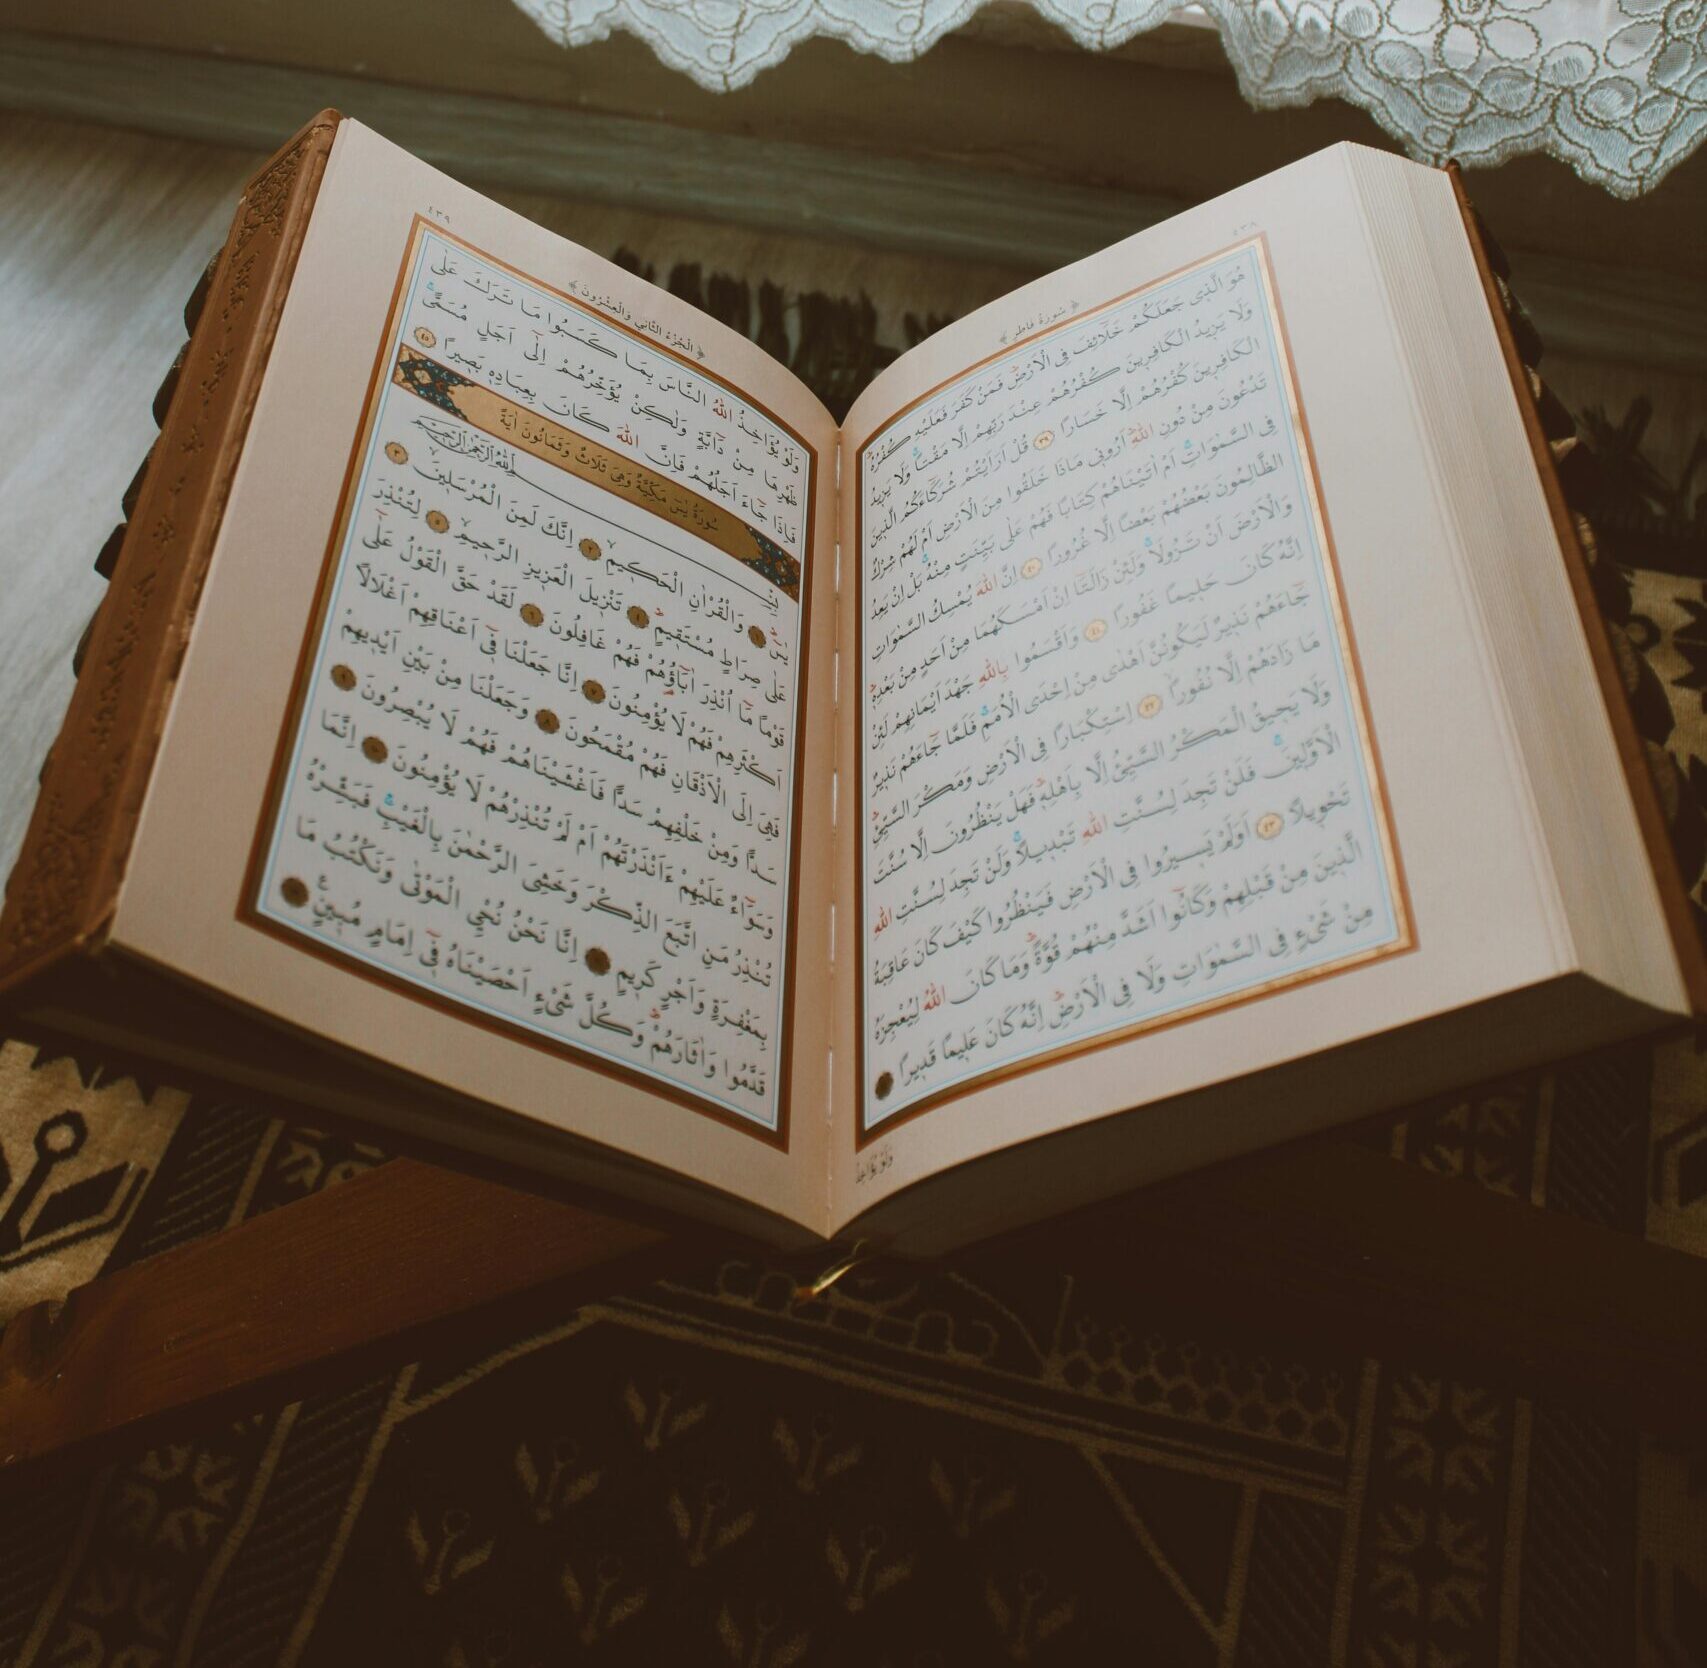 ٤٣٨
سُورَةُ فَاطِرٍ
هُوَ الَّذِى جَعَلَكُمْ خَلَٓائِفَ فِى الْاَرْضِ فَمَنْ كَفَرَ فَعَلَيْهِ كُفْرُهُ
وَلَا يَزِيدُ الْكَافِرِينَ كُفْرُهُمْ عِنْدَ رَبِّهِمْ اِلَّا مَقْتًا وَلَا يَزِيدُ
الْكَافِرِينَ كُفْرُهُمْ اِلَّا خَسَارًا ٣٩ قُلْ اَرَاَيْتُمْ شُرَكَٓاءَكُمُ الَّذِينَ
تَدْعُونَ مِنْ دُونِ اللّٰهِ اَرُونِى مَاذَا خَلَقُوا مِنَ الْاَرْضِ اَمْ لَهُمْ شِرْكٌ
فِى السَّمٰوَاتِ اَمْ اٰتَيْنَاهُمْ كِتَابًا فَهُمْ عَلٰى بَيِّنَتٍ مِنْهُ بَلْ اِنْ يَعِدُ
الظَّالِمُونَ بَعْضُهُمْ بَعْضًا اِلَّا غُرُورًا ٤٠ اِنَّ اللّٰهَ يُمْسِكُ السَّمٰوَاتِ
وَالْاَرْضَ اَنْ تَزُولَا وَلَئِنْ زَالَتَٓا اِنْ اَمْسَكَهُمَا مِنْ اَحَدٍ مِنْ بَعْدِهِ
اِنَّهُ كَانَ حَلِيمًا غَفُورًا ٤١ وَاَقْسَمُوا بِاللّٰهِ جَهْدَ اَيْمَانِهِمْ لَئِنْ
جَٓاءَهُمْ نَذِيرٌ لَيَكُونُنَّ اَهْدٰى مِنْ اِحْدَى الْاُمَمِ فَلَمَّا جَٓاءَهُمْ نَذِيرٌ
مَا زَادَهُمْ اِلَّا نُفُورًا ٤٢ اِسْتِكْبَارًا فِى الْاَرْضِ وَمَكْرَ السَّيِّئِ
وَلَا يَحِيقُ الْمَكْرُ السَّيِّئُ اِلَّا بِاَهْلِهِ فَهَلْ يَنْظُرُونَ اِلَّا سُنَّتَ
الْاَوَّلِينَ فَلَنْ تَجِدَ لِسُنَّتِ اللّٰهِ تَبْدِيلًا وَلَنْ تَجِدَ لِسُنَّتِ اللّٰهِ
تَحْوِيلًا ٤٣ اَوَلَمْ يَسِيرُوا فِى الْاَرْضِ فَيَنْظُرُوا كَيْفَ كَانَ عَاقِبَةُ
الَّذِينَ مِنْ قَبْلِهِمْ وَكَانُٓوا اَشَدَّ مِنْهُمْ قُوَّةً وَمَا كَانَ اللّٰهُ لِيُعْجِزَهُ
مِنْ شَىْءٍ فِى السَّمٰوَاتِ وَلَا فِى الْاَرْضِ اِنَّهُ كَانَ عَلِيمًا قَدِيرًا
وَلَوْ يُؤَاخِذُ
٤٣٩
اَلْجُزْءُ الثَّانِي وَالْعِشْرُونَ
وَلَوْ يُؤَاخِذُ اللّٰهُ النَّاسَ بِمَا كَسَبُوا مَا تَرَكَ عَلٰى
ظَهْرِهَا مِنْ دَٓابَّةٍ وَلٰكِنْ يُؤَخِّرُهُمْ اِلٰٓى اَجَلٍ مُسَمًّى
فَاِذَا جَٓاءَ اَجَلُهُمْ فَاِنَّ اللّٰهَ كَانَ بِعِبَادِهِ بَصِيرًا ٤٥
سُورَةُ يٰسٓ مَكِّيَّةٌ وَهِيَ ثَلَاثٌ وَثَمَانُونَ اٰيَةً
بِسْمِ اللّٰهِ الرَّحْمٰنِ الرَّحِيمِ
يٰسٓ ١ وَالْقُرْاٰنِ الْحَكِيمِ ٢ اِنَّكَ لَمِنَ الْمُرْسَلِينَ ٣
عَلٰى صِرَاطٍ مُسْتَقِيمٍ ٤ تَنْزِيلَ الْعَزِيزِ الرَّحِيمِ ٥ لِتُنْذِرَ
قَوْمًا مَٓا اُنْذِرَ اٰبَٓاؤُهُمْ فَهُمْ غَافِلُونَ ٦ لَقَدْ حَقَّ الْقَوْلُ عَلٰٓى
اَكْثَرِهِمْ فَهُمْ لَا يُؤْمِنُونَ ٧ اِنَّا جَعَلْنَا فِٓى اَعْنَاقِهِمْ اَغْلَالًا
فَهِىَ اِلَى الْاَذْقَانِ فَهُمْ مُقْمَحُونَ ٨ وَجَعَلْنَا مِنْ بَيْنِ اَيْدِيهِمْ
سَدًّا وَمِنْ خَلْفِهِمْ سَدًّا فَاَغْشَيْنَاهُمْ فَهُمْ لَا يُبْصِرُونَ ٩
وَسَوَٓاءٌ عَلَيْهِمْ ءَاَنْذَرْتَهُمْ اَمْ لَمْ تُنْذِرْهُمْ لَا يُؤْمِنُونَ ١٠ اِنَّمَا
تُنْذِرُ مَنِ اتَّبَعَ الذِّكْرَ وَخَشِىَ الرَّحْمٰنَ بِالْغَيْبِ فَبَشِّرْهُ
بِمَغْفِرَةٍ وَاَجْرٍ كَرِيمٍ اِنَّا نَحْنُ نُحْيِ الْمَوْتٰى وَنَكْتُبُ مَا
قَدَّمُوا وَاٰثَارَهُمْ وَكُلَّ شَىْءٍ اَحْصَيْنَاهُ فِٓى اِمَامٍ مُبِينٍ
ع